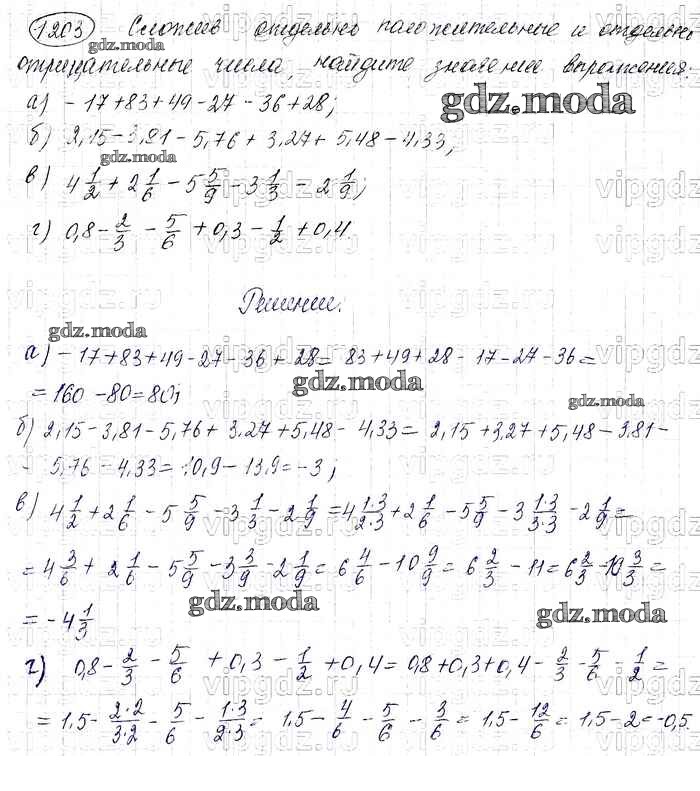 1203 Сложив отдельно положительные и отдельно
gdz.moda
отрицательные числа, найдите значение выражения:
а) - 17 + 83 + 49 - 27 - 36 + 28;
gdz.moda
б) 2,15 - 3,81 - 5,76 + 3,27 + 5,48 - 4,33;
gdz.moda
в) 4 1/2 + 2 1/6 - 5 5/9 - 3 1/3 - 2 1/9;
г) 0,8 - 2/3 - 5/6 + 0,3 - 1/2 + 0,4.
Решение.
gdz.moda
а) - 17 + 83 + 49 - 27 - 36 + 28 = 83 + 49 + 28 - 17 - 27 - 36 =
gdz.moda
= 160 - 80 = 80;
gdz.moda
б) 2,15 - 3,81 - 5,76 + 3,27 + 5,48 - 4,33 = 2,15 + 3,27 + 5,48 - 3,81 -
- 5,76 - 4,33 = 10,9 - 13,9 = -3;
в) 4 1/2 + 2 1/6 - 5 5/9 - 3 1/3 - 2 1/9 = 4 1·3/2·3 + 2 1/6 - 5 5/9 - 3 1·3/3·3 - 2 1/9 =
= 4 3/6 + 2 1/6 - 5 5/9 - 3 3/9 - 2 1/9 = 6 4/6 - 10 9/9 = 6 2/3 - 11 = 6 2/3 - 10 3/3 =
gdz.moda
gdz.moda
= - 4 1/3
г) 0,8 - 2/3 - 5/6 + 0,3 - 1/2 + 0,4 = 0,8 + 0,3 + 0,4 - 2/3 - 5/6 - 1/2 =
= 1,5 - 2·2/3·2 - 5/6 - 1·3/2·3 = 1,5 - 4/6 - 5/6 - 3/6 = 1,5 - 12/6 = 1,5 - 2 = -0,5.
vipgdz.ru